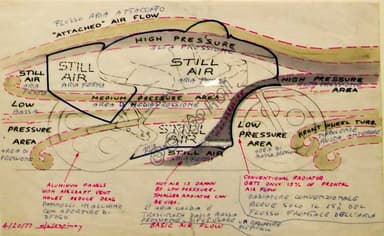 FLUSSO ARIA ATTACCATO
"ATTACHED" AIR FLOW
HIGH PRESSURE
ALTA PRESSIONE
STILL
AIR
ARIA FERMA
STILL
AIR
ARIA FERMA
STILL
AIR
ARIA FERMA
HIGH PRESSURE
AREA
MEDIUM PRESSURE AREA
AREA DI MEDIA PRESSIONE
LOW
BASSA
PRESSURE
AREA
AREA DI
PRESSIONE
STILL
AIR
STILL AIR
LOW
PRESSURE
AREA
AREA DI
BASSA PRESSIONE
FRONT WHEEL TURB.
ALUMINUM PANELS
WITH AIRCRAFT VENT
HOLES REDUCE DRAG
PANNELLI IN ALLUMINIO
CON APERTURE DI
SFOGO
HOT AIR IS DRAWN
BY LOW PRESSURE.
SMALLER RADIATOR
CAN BE USED.
L'ARIA CALDA È
BASIC AIR FLOW
CONVENTIONAL RADIATOR
GETS ONLY 18% OF FRONTAL
AIR FLOW
RADIATORE CONVENZIONALE
RICEVE SOLO IL 18% DEL
FLUSSO FRONTALE DELL'ARIA
4/20/77